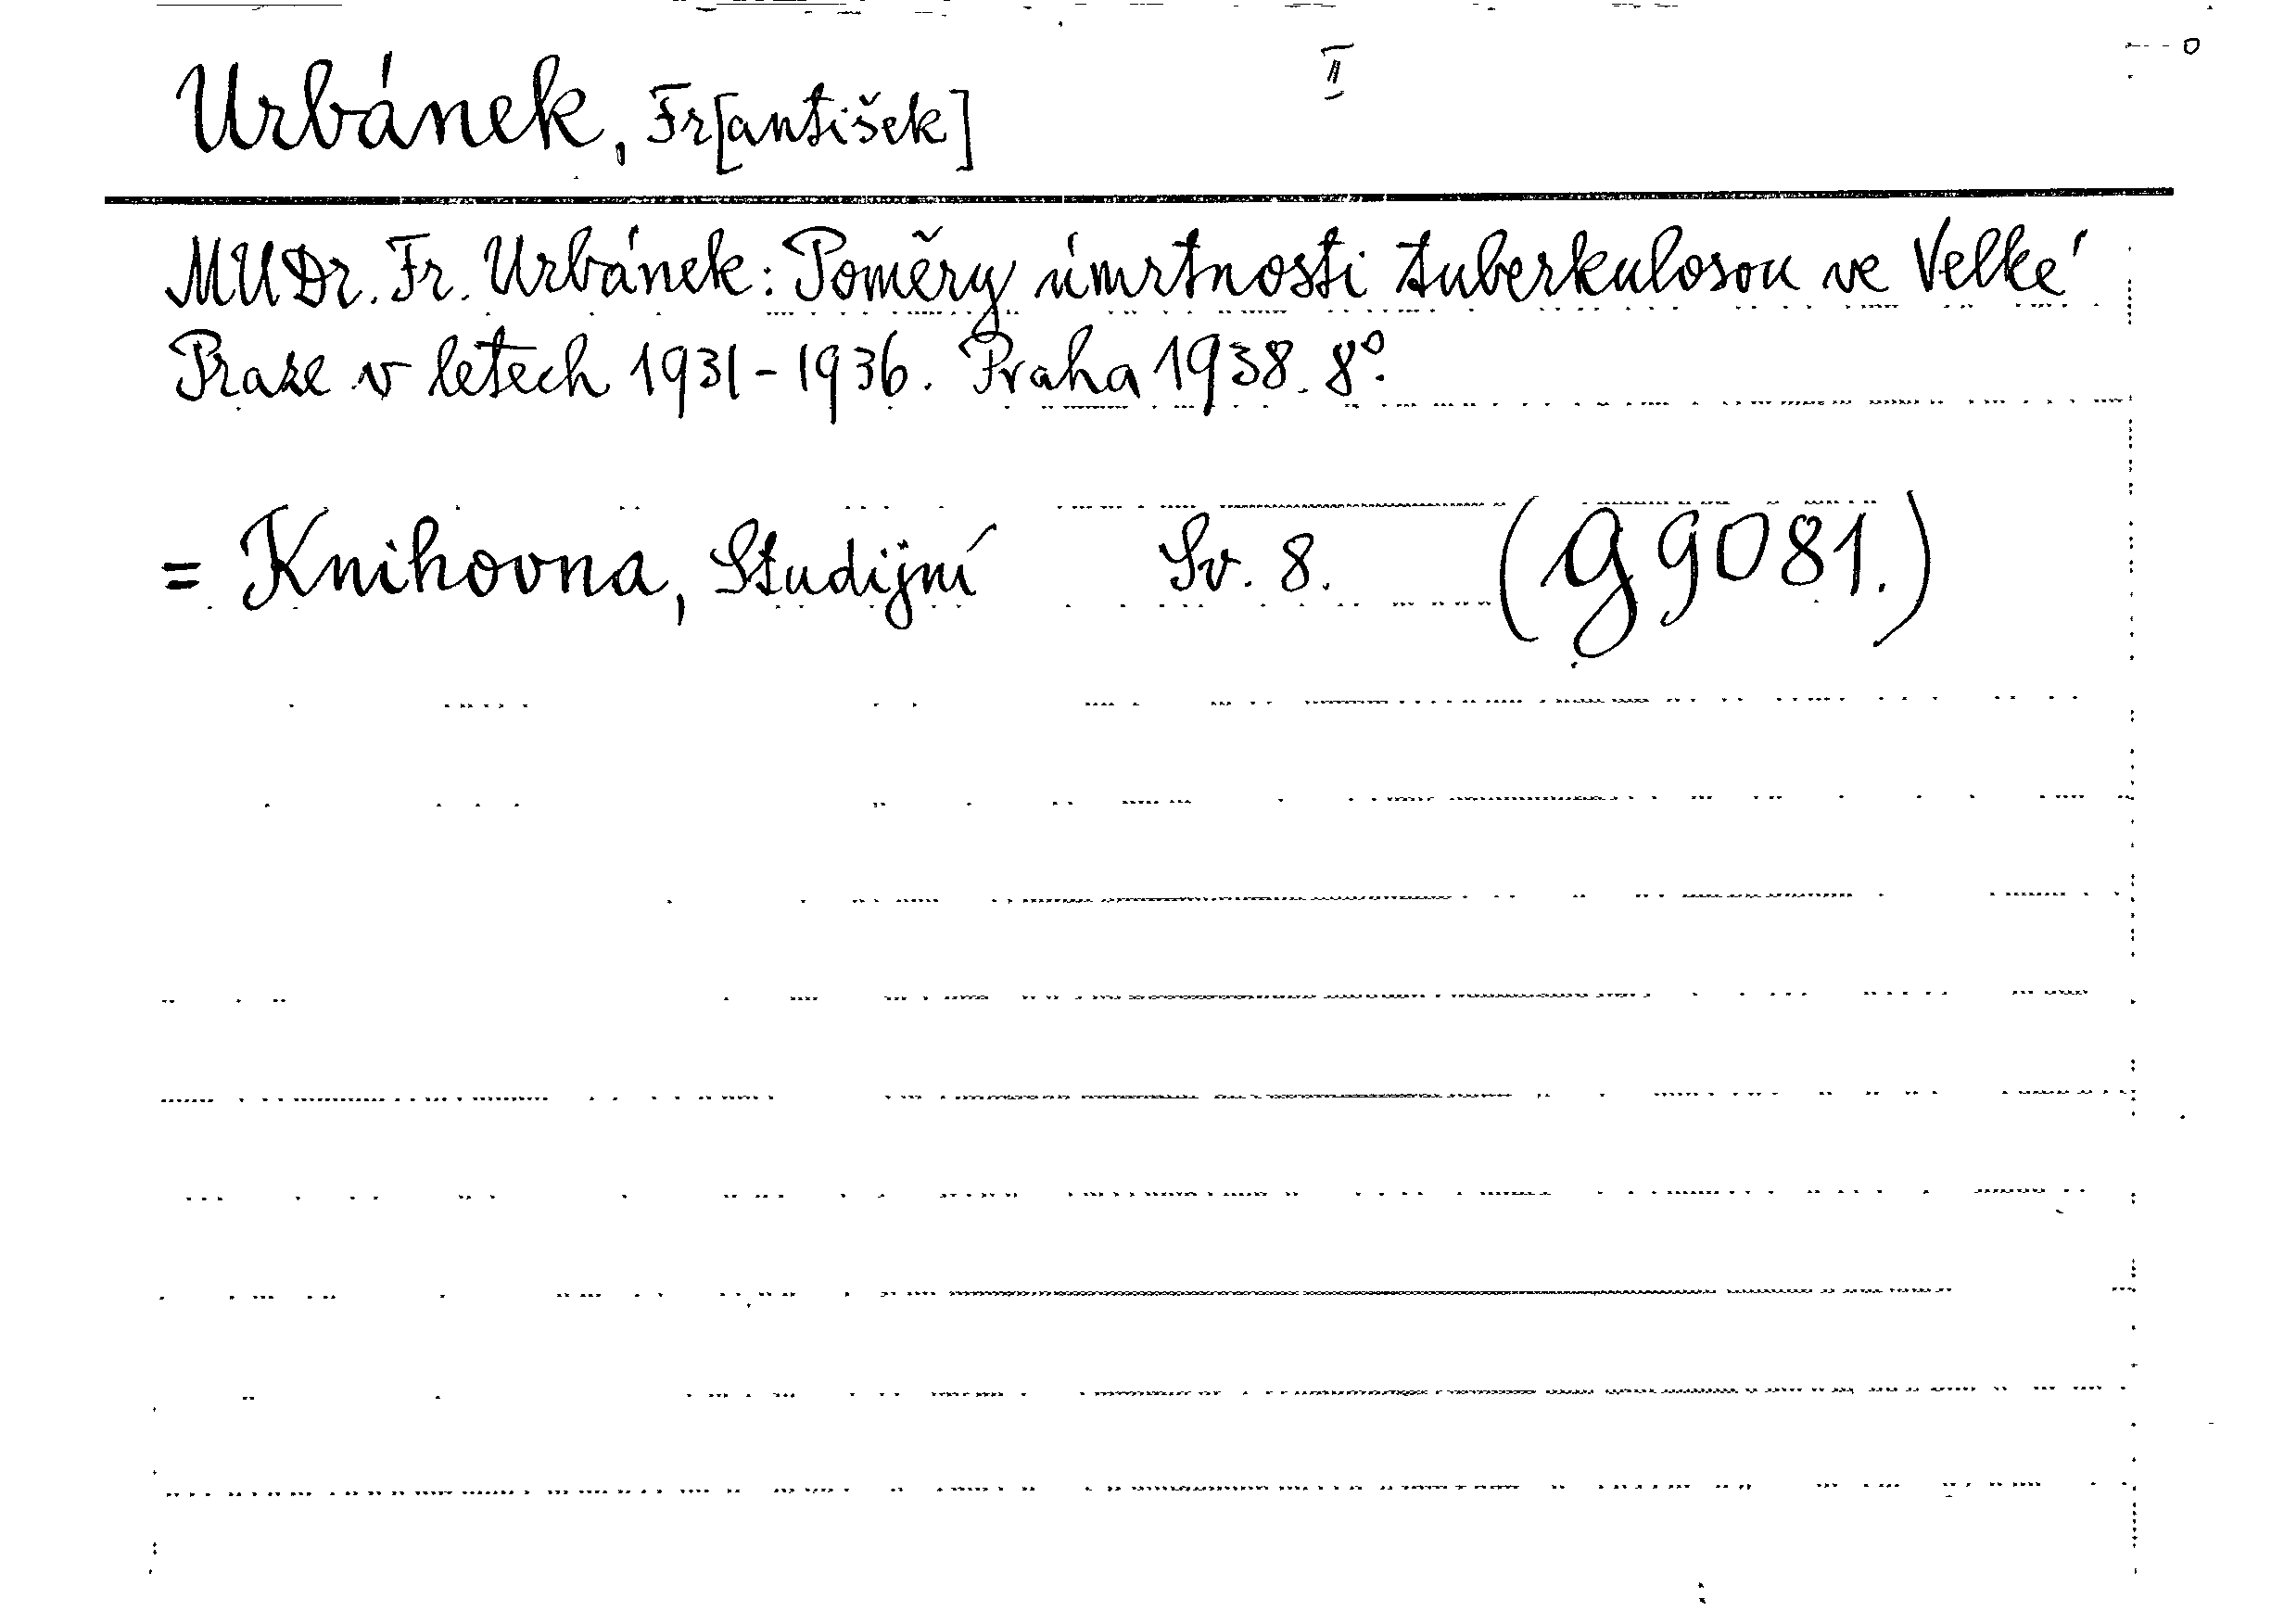 Urbánek, Fr[antišek] II
MUDr. Fr. Urbánek: Poměry úmrtnosti tuberkulosou ve Velké
Praze v letech 1931-1936. Praha 1938. 8º.
= Knihovna, Studijní Sv. 8. (G 9081.)